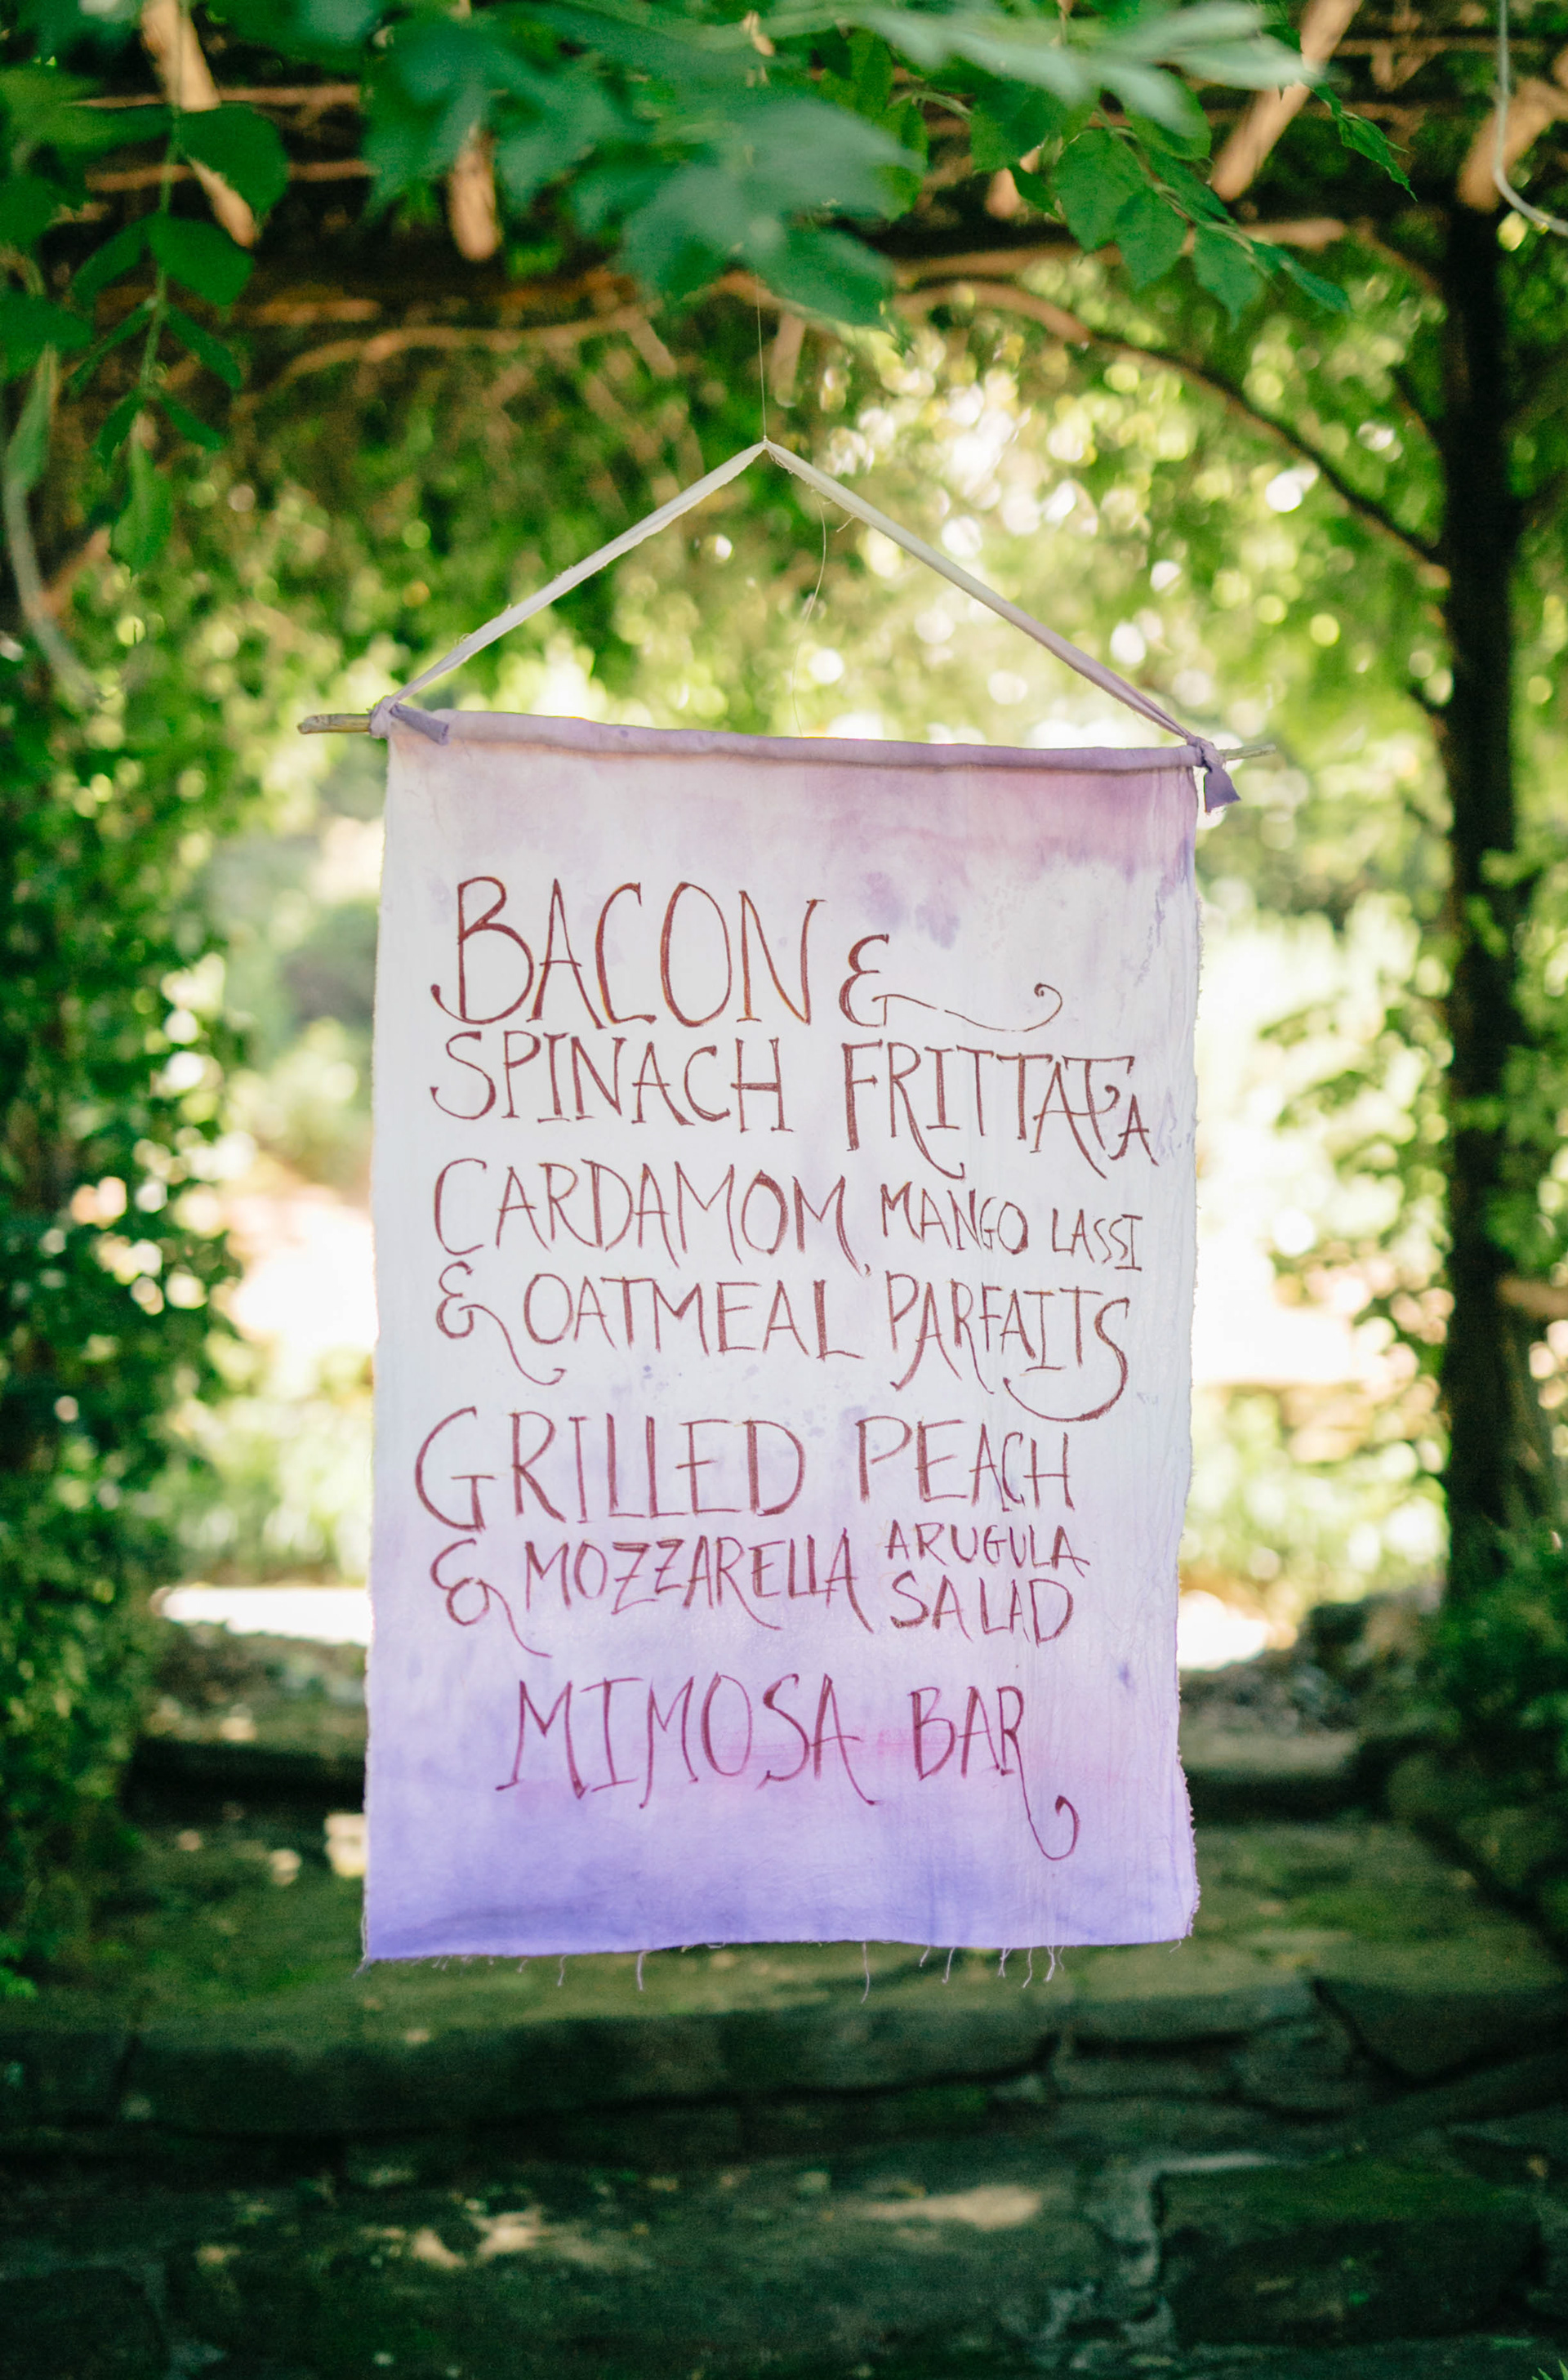 BACON &
SPINACH FRITTATA
CARDAMOM, MANGO LASSI
& OATMEAL PARFAITS
GRILLED PEACH
& MOZZARELLA ARUGULA
SALAD
MIMOSA BAR